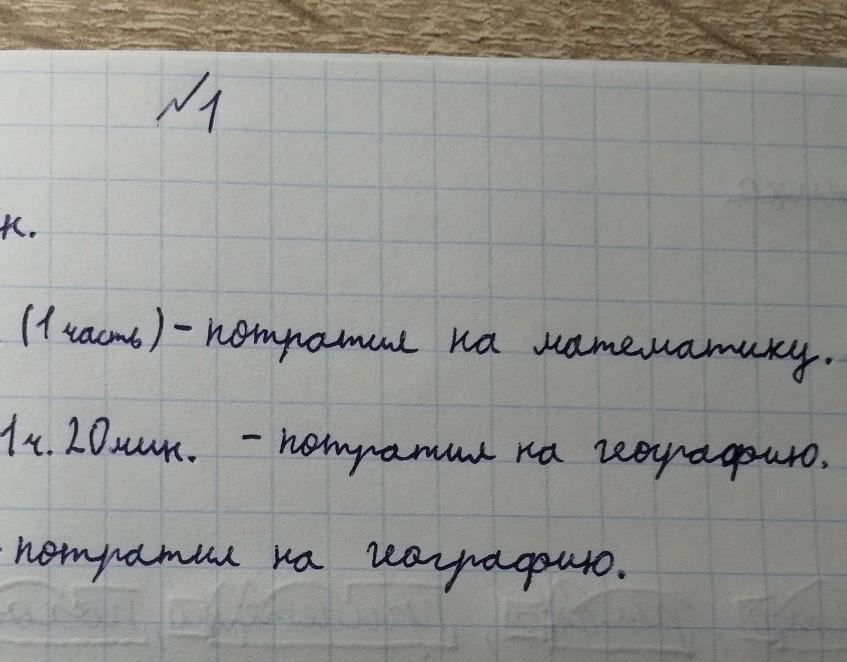 №1
к.
(1 часть) - потратил на математику.
1 ч. 20 мин. - потратил на географию.
- потратил на географию.